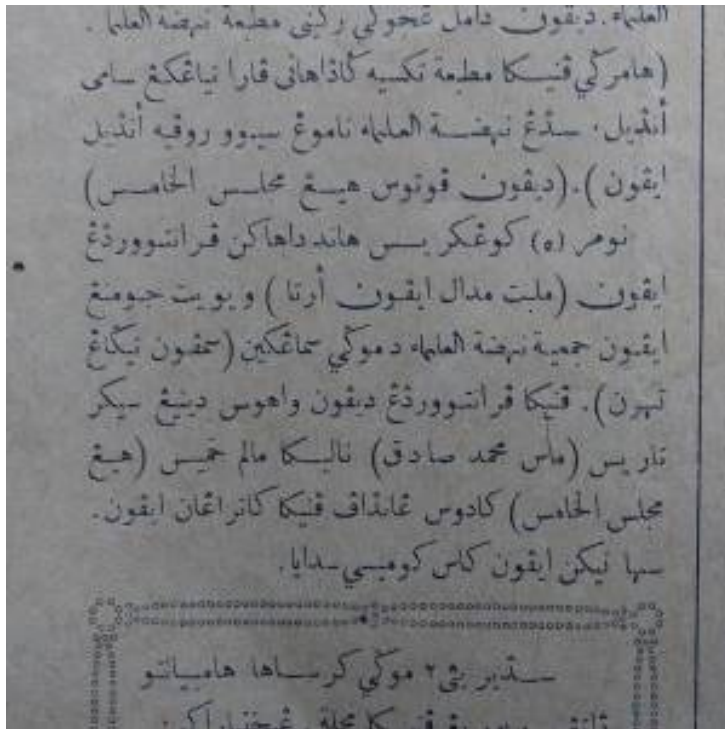 العلماء. ديڤون دامل ڠجوكي رڬيني مطبعة نهضة العلما.
(هامركي ڤنيكا مطبعة تكسيه ڬاداهاني ڤارا تياڠكڠ سامى
أنديل. سدڠ نهضة العلماء ناموڠ سيوو روڤيه أنديل
ايڤون). (ديڤون ڤوتوس هيڠ مجلس الخامس)
نومر (٥) كوڠكر يس هاندداهاكن ڤرانتووردڠ
ايڤون (ملبت مدال ايڤون أرتا) ويويت جومنڠ
ايڤون جمعية نهضة العلماء دموڬي سماڠكين (سمڤون تيڬاڠ
تهون). ڤنيكا ڤرانتووردڠ ديڤون واهوس دينيڠ سيكر
تاريس (ماس محمد صادق) ناليكا مالم خميس (هيڠ
مجلس الخامس) كادوس ڠانداڤ ڤنيكا كاتراڠان ايڤون.
سها تيكن ايڤون كاس كوميسي سدايا.
سدير يڽ٢ موڬي كرساها هامبيانتو
ڤنيكا مجلة